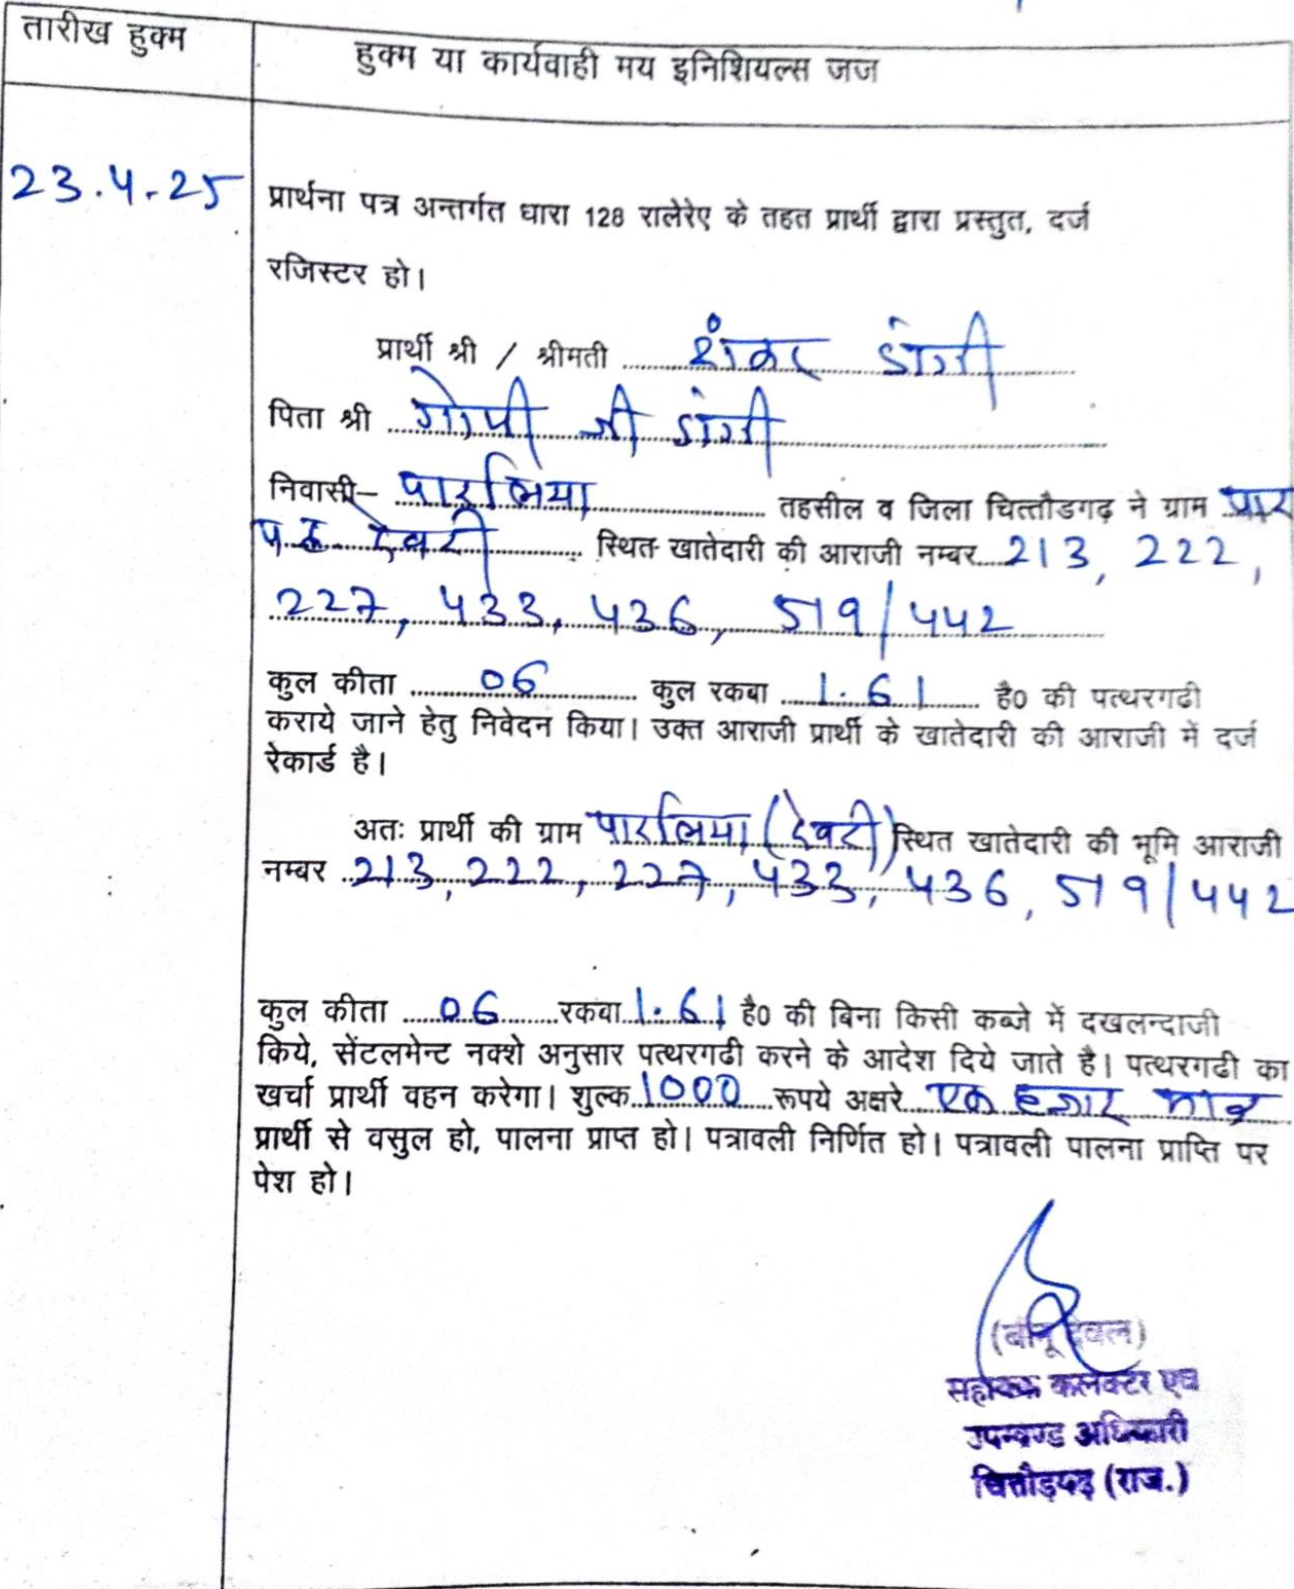 तारीख हुक्म
हुक्म या कार्यवाही मय इनिशियल्स जज
23.4.25
प्रार्थना पत्र अन्तर्गत धारा 128 रालेरेए के तहत प्रार्थी द्वारा प्रस्तुत, दर्ज
रजिस्टर हो।
प्रार्थी श्री / श्रीमती शंकर डांगी
पिता श्री गोपी जी डांगी
निवासी– पारलिया तहसील व जिला चित्तौडगढ़ ने ग्राम पार
प.ह. देवरी स्थित खातेदारी की आराजी नम्बर 213, 222,
227, 433, 436, 519/442
कुल कीता 06 कुल रकबा 1.61 है0 की पत्थरगढी
कराये जाने हेतु निवेदन किया। उक्त आराजी प्रार्थी के खातेदारी की आराजी में दर्ज
रेकार्ड है।
अतः प्रार्थी की ग्राम पारलिया (देवरी) स्थित खातेदारी की भूमि आराजी
नम्बर 213, 222, 227, 433, 436, 519/442
कुल कीता 06 रकबा 1.61 है0 की बिना किसी कब्जे में दखलन्दाजी
किये, सेंटलमेन्ट नक्शे अनुसार पत्थरगढी करने के आदेश दिये जाते है। पत्थरगढी का
खर्चा प्रार्थी वहन करेगा। शुल्क 1000 रूपये अक्षरे एक हजार मात्र
प्रार्थी से वसुल हो, पालना प्राप्त हो। पत्रावली निर्णित हो। पत्रावली पालना प्राप्ति पर
पेश हो।
(बीनू देवल)
सहायक कलेक्टर एवं
उपखण्ड अधिकारी
चित्तौड़गढ़ (राज.)